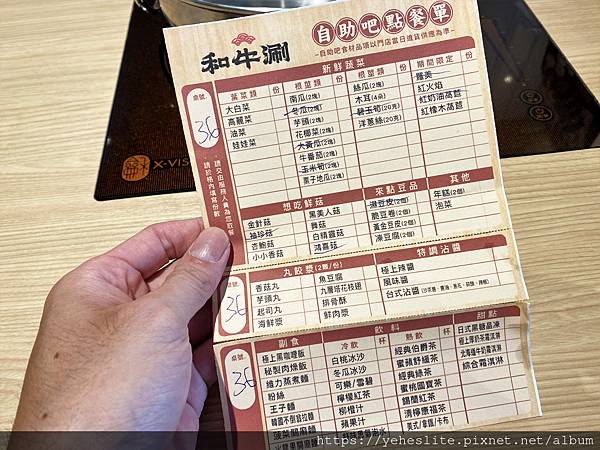 和牛涮
自助吧點餐單
~自助吧食材品項以門店當日進貨供應為準~
新鮮蔬菜
葉菜類 份 根莖類 份 根莖類 份 期間限定 份
大白菜 南瓜(2塊) 絲瓜(2塊)
高麗菜 冬瓜(2塊) 木耳(4朵) 紅火焰
油菜 芋頭(2塊) 碧玉筍(20克) 紅奶油萵苣
娃娃菜 花椰菜(2塊) 洋蔥絲(20克) 紅橡木萵苣
大黃瓜(2塊)
牛番茄(2塊)
玉米筍(2塊)
栗子地瓜(2塊)
桌號
36
請交由服務人員為您取餐
請於格內填寫份數
想吃鮮菇 來點豆品 其他
金針菇 黑美人菇 澎豆皮(2個) 年糕(2個)
袖珍菇 舞菇 脆豆卷(2個) 泡菜
杏鮑菇 白精靈菇 黃金豆皮(2個)
小小香菇 鴻喜菇 凍豆腐(2個)
丸餃漿(2顆/份) 特調沾醬
香菇丸 魚豆腐 極上辣醬
芋頭丸 九層塔花枝翅 風味醬
起司丸 排骨酥 台式沾醬
海鮮漿 鮮肉漿
36
桌號
副食 飲料 甜點
冷飲 杯 熱飲 杯
極上黑咖哩飯 白桃冰沙 經典伯爵茶 日式黑糖晶凍
秘製肉燥飯 冬瓜冰沙 蜜蘋舒緩茶 極上厚奶茶霜淇淋
維力蒸煮麵 可樂/雪碧 經典綠茶 北海道牛奶霜淇淋
粉絲 檸檬紅茶 蜜桃國寶茶 綜合霜淇淋
王子麵 柳橙汁 錫蘭紅茶
韓國不倒翁拉麵 蘋果汁 清檸康福茶
菠菜關廟麵 美式/拿鐵/卡布
36
X-VIS
https://yeheslite.pixnet.net/album